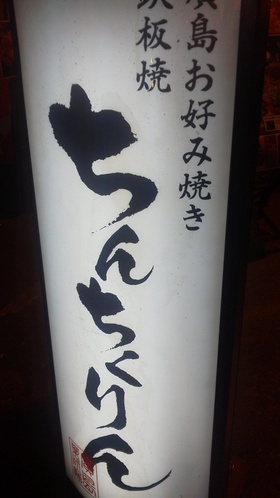 廣島お好み焼き
鉄板焼
ちんちくりん